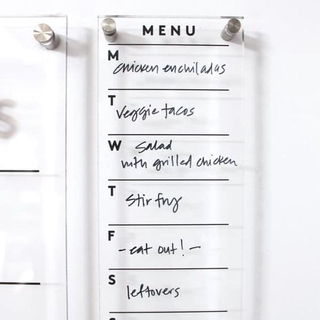 MENU
M
chicken enchiladas
T
Veggie tacos
W
Salad
with grilled chicken
T
Stir fry
F
- eat out! -
S
leftovers
S